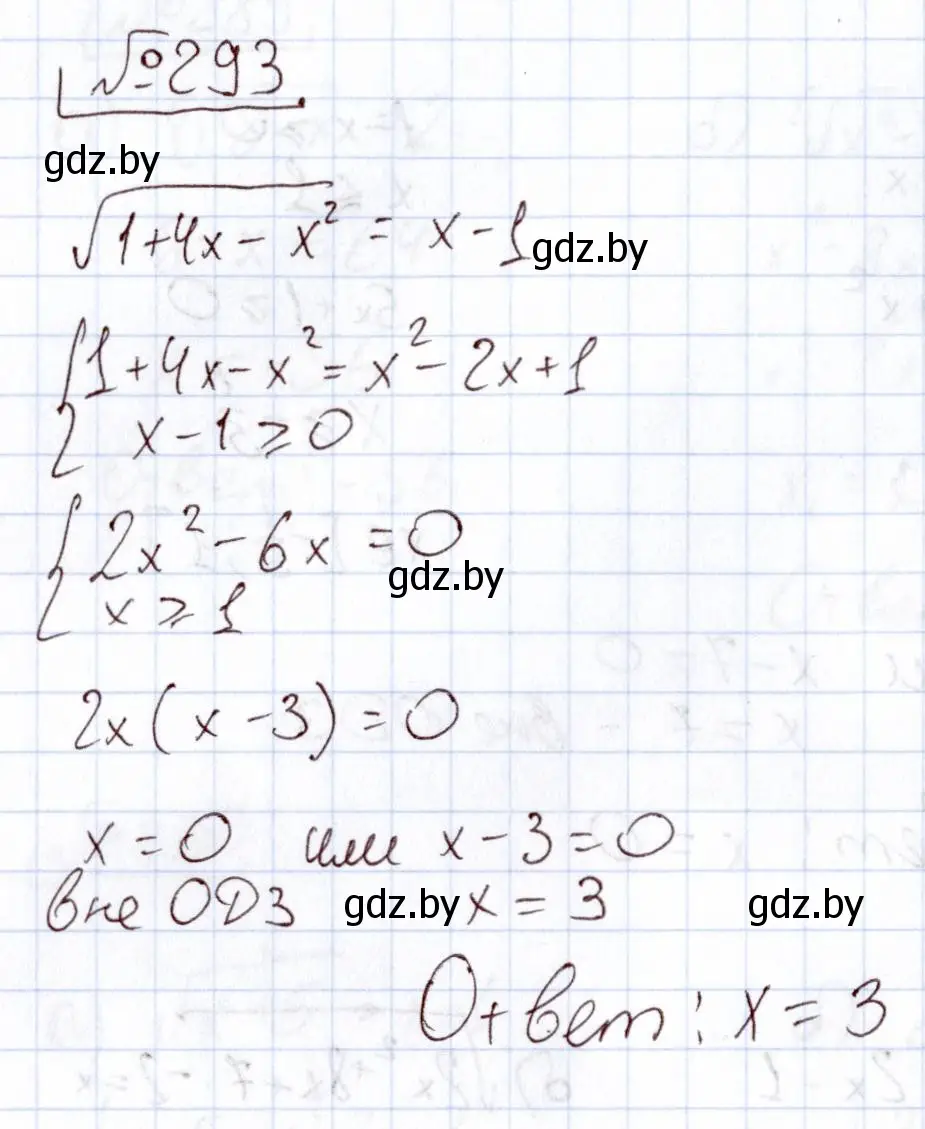 №293.
gdz.by
√(1+4x-x²) = x-1 gdz.by
{ 1+4x-x² = x²-2x+1
x-1 ≥ 0
{ 2x²-6x = 0
gdz.by
x ≥ 1
2x(x-3) = 0
x = 0 или x-3 = 0
вне ОДЗ gdz.by x = 3 gdz.by
Ответ: x = 3